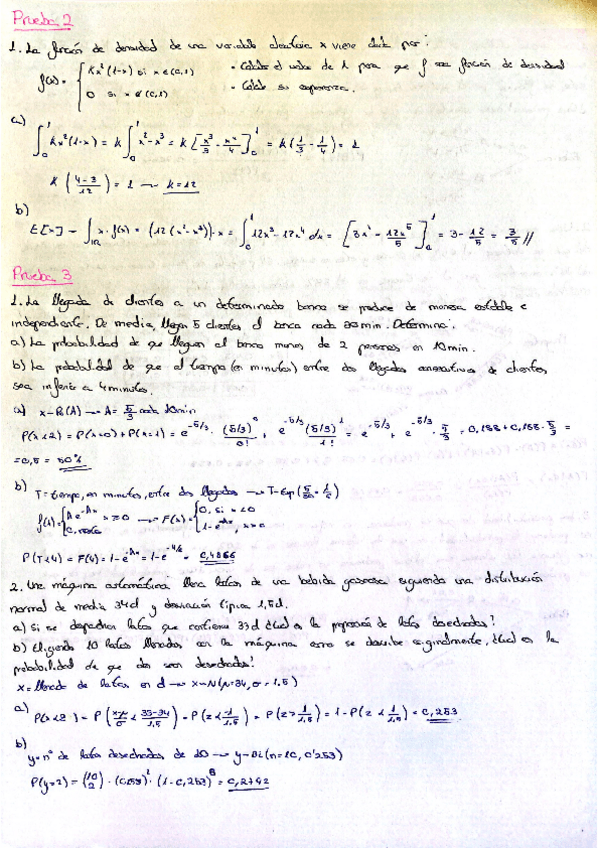 Prueba 2
1. La función de densidad de una variable aleatoria x viene dada por:
f(x) = { Kx²(1-x) si x∈(0,1)
0 si x∉(0,1)
• Calcula el valor de k para que f sea función de densidad
• Calcula su esperanza.
a)
∫₀¹ Kx²(1-x) = k ∫₀¹ x²-x³ = k [x³/3 - x⁴/4]₀¹ = k(1/3 - 1/4) = 1
K (4-3/12) = 1 → k=12
b)
E[x] = ∫ℝ x·f(x) = (12(x²-x³))·x = ∫₀¹ 12x³-12x⁴ dx = [3x⁴ - 12x⁵/5]₀¹ = 3 - 12/5 = 3/5 //
Prueba 3
1. La llegada de clientes a un determinado banco se produce de manera estable e
independiente. De media, llegan 5 clientes al banco cada 30 min. Determina:
a) La probabilidad de que lleguen al banco menos de 2 personas en 10 min.
b) La probabilidad de que el tiempo (en minutos) entre dos llegadas consecutivas de clientes
sea inferior a 4 minutos.
a) x~P₀(λ) → λ = 5/3 cada 10min
P(x<2) = P(x=0)+P(x=1) = e^-5/3 · (5/3)⁰/0! + e^-5/3 (5/3)¹/1! = e^-5/3 + e^-5/3 · 5/3 = 0,188+0,188 · 5/3 =
=0,5 = 50%
b) T= tiempo, en minutos, entre dos llegadas → T~Exp(5/30 = 1/6)
f(x)= { λe^-λx x≥0
0, resto → F(x) = { 0, si x<0
1-e^-λx, x≥0
P(T<4) = F(4) = 1-e^-λx = 1-e^-4/6 = 0,4866
2. Una máquina automática llena latas de una bebida gaseosa siguiendo una distribución
normal de media 34cl y desviación típica 1,5cl.
a) Si se desechan latas que contienen 33cl ¿Cuál es la proporción de latas desechadas?
b) Eligiendo 10 latas llenadas con la máquina como se describe originalmente, ¿Cuál es la
probabilidad de que dos sean desechadas?
x= llenado de latas en cl → x~N(μ=34, σ=1,5)
a)
P(x<2) = P(x-μ/σ < 33-34/1,5) = P(z<-1/1,5) = P(z>1/1,5) = 1-P(z<1/1,5) = 0,253
b)
y= nº de latas desechadas de 10 → y~Bi(n=10, 0'253)
P(y=2) = (10/2) · (0,253)² · (1-0,253)⁸ = 0,2792